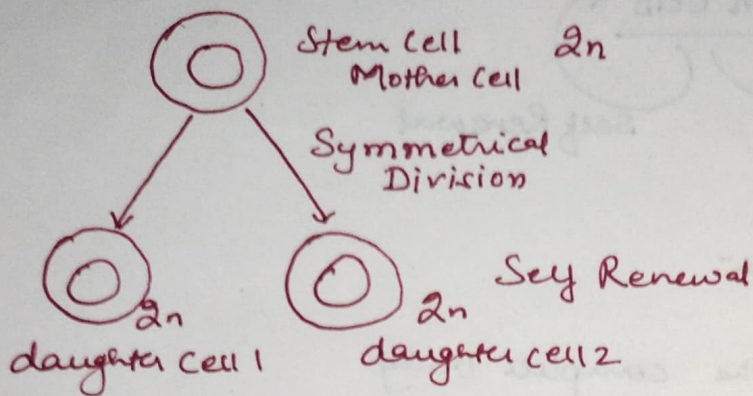 Stem Cell 2n
Mother Cell
Symmetrical
Division
Self Renewal
2n
2n
daughter Cell 1
daughter cell 2